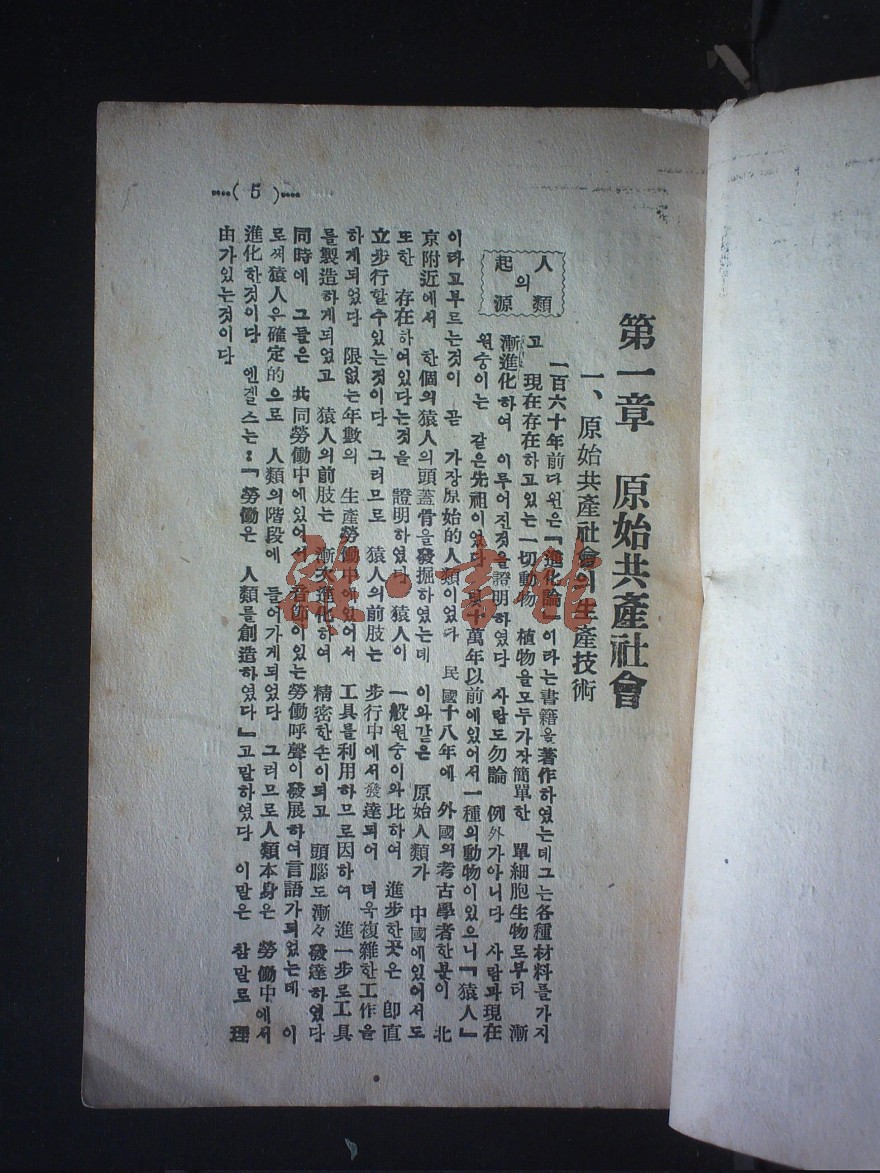 第一章 原始共產社會
一、原始共產社會의生產技術
人類의起源
一百六十年前다윈은「進化論」이라는書籍을著作하였는데그는各種材料를가지
고 現在存在하고있는一切動物 植物을모두가장簡單한 單細胞生物로부터 漸
漸進化하여 이루어진것을證明하였다 사람도勿論 例外가아니다 사람과現在
원숭이는 같은先祖이였다 萬年以前에있어서一種의動物이있으니「猿人」
이라고부르는것이 곧 가장原始的人類이였다 民國十八年에 外國의考古學者한분이 北
京附近에서 한個의猿人의頭蓋骨을發掘하였는데 이와같은 原始人類가 中國에있어서도
또한 存在하여있다는것을 證明하였다 猿人이 一般원숭이와比하여 進步한곳은 即直
立步行할수있는것이다 그러므로 猿人의前肢는 步行中에서發達되어 더욱複雜한工作을
하게되었다 限없는年數의 生產勞働中에있어서 工具를利用하므로因하여 進一步로工具
를製造하게되었고 猿人의前肢는 漸次進化하여 精密한손이되고 頭腦도漸々發達하였다
同時에 그들은 共同勞働中에있어서 音節이있는勞働呼聲이發展하여言語가되었는데 이
로써猿人은確定的으로 人類의階段에 들어가게되었다 그러므로人類本身은 勞働中에서
進化한것이다 엔겔스는:「勞働은 人類를創造하였다」고말하였다 이말은 참말로 理
由가있는것이다
…( 5 )…
雅·書館